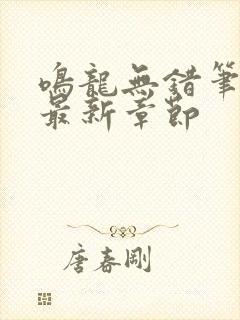 鳴龍無錯筆
最新章節
唐春剛